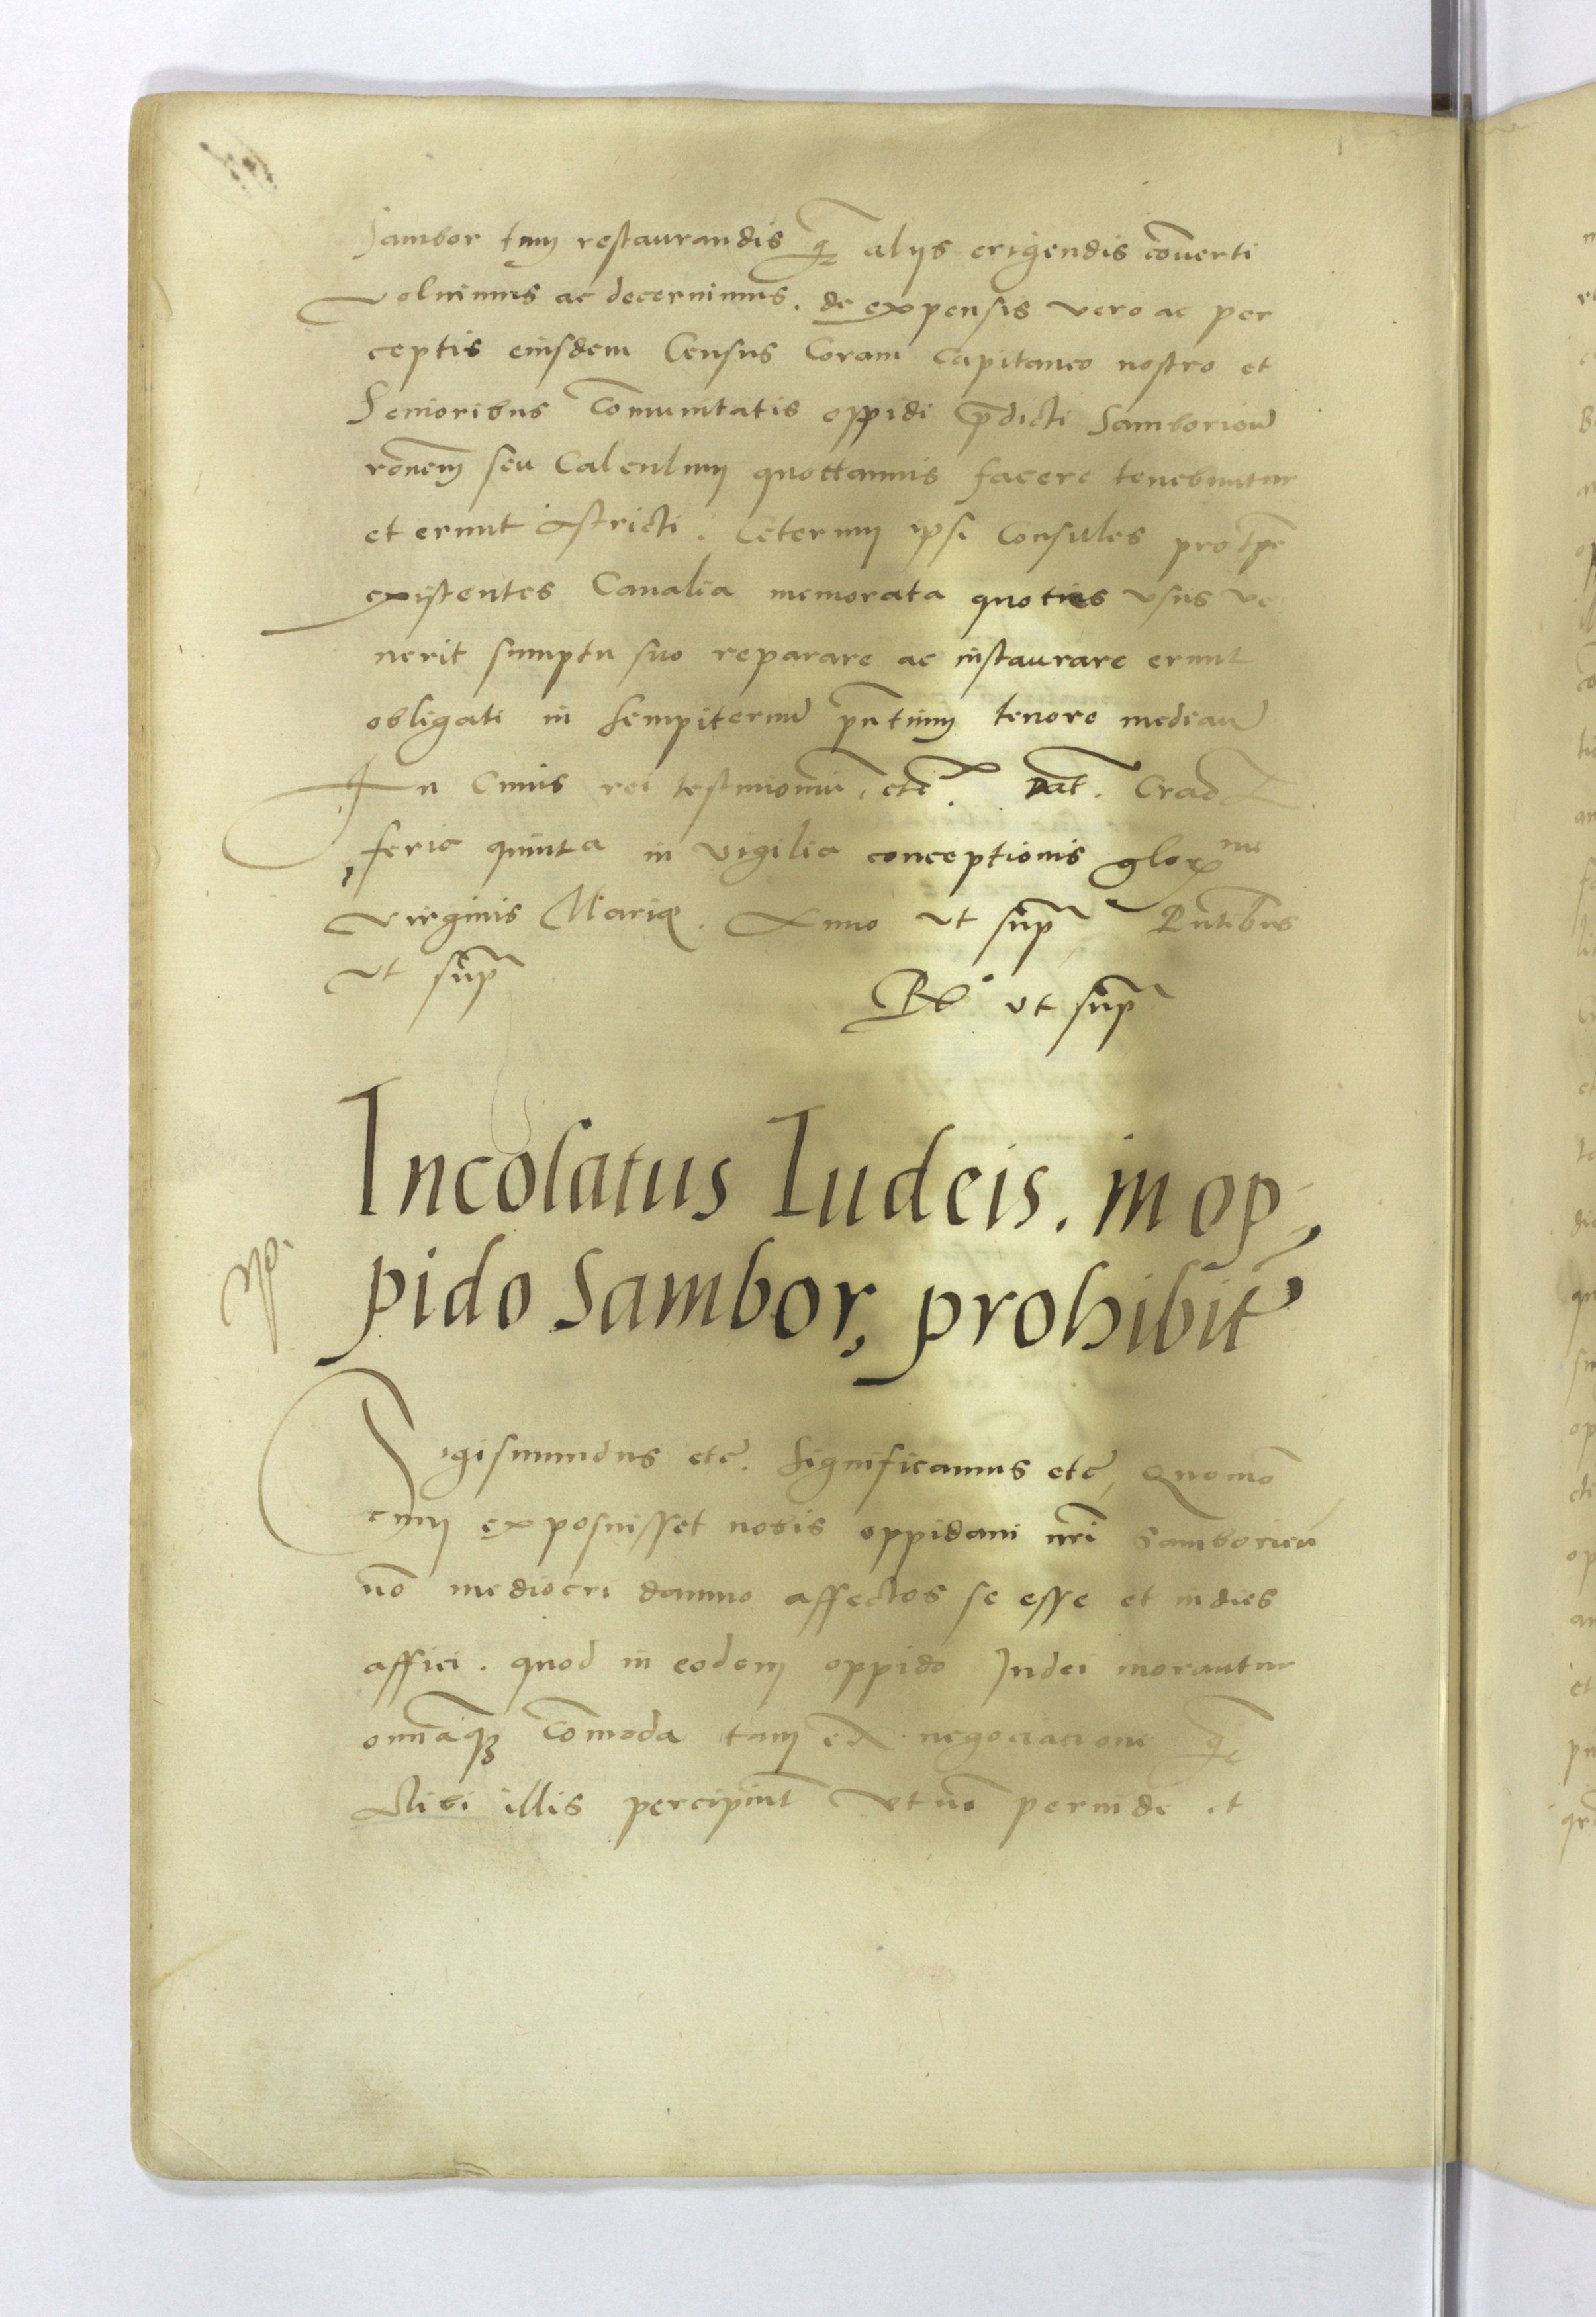 Sambor tum restaurandis q̃ alijs erigendis cōverti
volumus ac decernimus. de expensis vero ac per
ceptis eiusdem Census Coram Capitaneo nostro et
Senioribus Com̄unitatis oppidi p̄dicti Samborieñ
rōnem seu Calculum quottannis facere tenebuntur
et erunt astricti. Ceterum ipsi Consules pro tp̄e
existentes Canalia memorata quoties usus ve
nerit sumptu suo reparare ac instaurare erunt
obligati in sempiternū p̄ntium tenore mediañ
In Cuius rei testimoniū, etc̄. Dat̄. Crac̄
feria quinta in vigilia conceptionis glor
virginis Marię. Anno ut sup̄ Pn̄tibus
ut sup̄
Rō ut sup̄
Incolatus Iudeis. in op,
pido Sambor, prohibit̃
Sigismundus etc̄. Significamus etc̄, Quomō
cum exposuisset nobis oppidani nr̄i Samborieñ
nō mediocri damno affectos se esse et indies
affici. quod in eodem oppido Judei morantur
omīaq₃ Com̄oda tam ex negociacione q̃
Alibi illis percipiunt̃ Ut nō perinde et